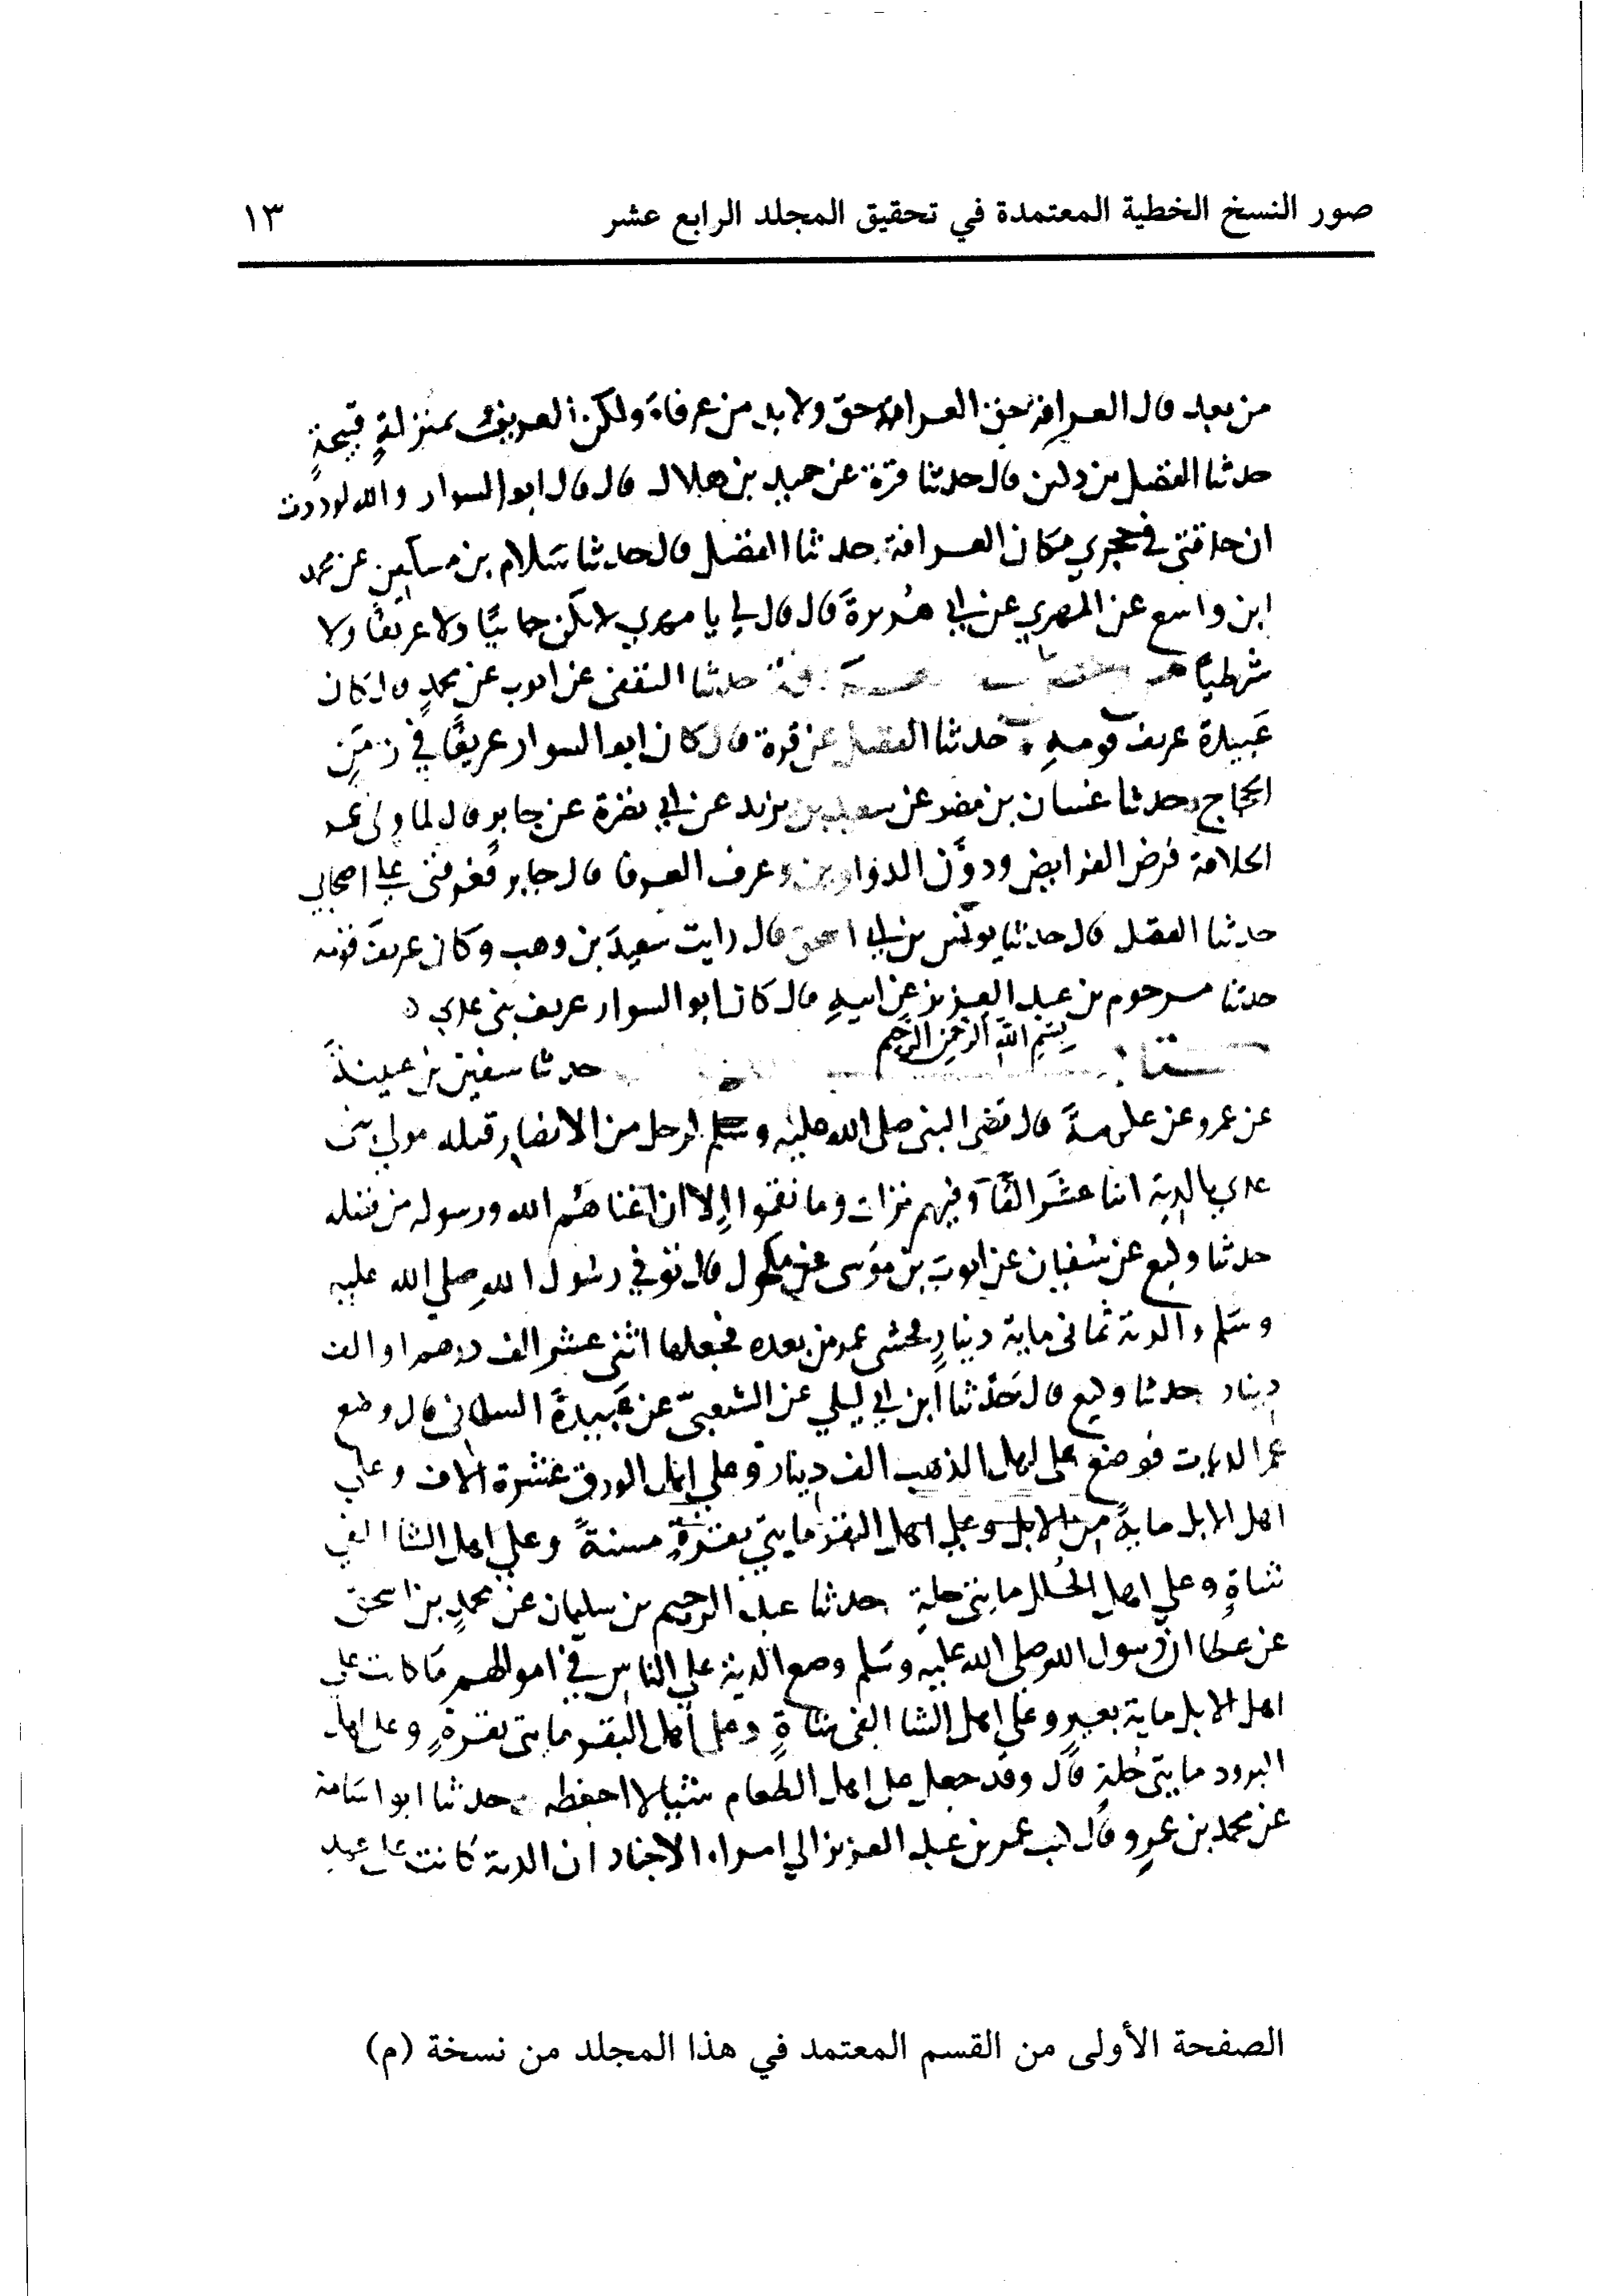 صور النسخ الخطية المعتمدة في تحقيق المجلد الرابع عشر ١٣
من بعد قال العرافة حق العرافة حق ولا بد من عرفاء ولكن العريف بمنزلةٍ قبيحةٍ
حدثنا الفضل بن دكين قال حدثنا قرة عن حميد بن هلال قال قال ابو السوار والله لوددت
ان حدقتي في حجري مكان العرافة حدثنا الفضل قال حدثنا سلام بن مسكين عن محمد
ابن واسع عن المهري عن ابي هريرة قال قال لي يا مهري لا تكن جابيًا ولا عريفًا ولا
شرطيًا حدثنا الثقفى عن ايوب عن محمدٍ قال كان
عَبيدة عريف قومه حدثنا الفضل عن قرة قال كان ابو السوار عريفًا في زمن
الحجاج حدثنا غسان بن مضر عن سعيد بن يزيد عن ابي نضرة عن جابر قال لما ولى عمر
الخلافة فرض الفرايض ودوَّن الدواوين وعرف العرفا قال جابر فعرفني على اصحابي
حدثنا الفضل قال حدثنا يونس بن ابي اسحق قال رايت سعيد بن وهب وكان عريف قومه
حدثنا مرحوم بن عبد العزيز عن ابيه قال كان ابو السوار عريف بني عدي
بسم الله الرحمن الرحيم
حدثنا سفين بن عيينة
عن عمرو عن عكرمة قال قضى النبي صلى الله عليه وسلم لرجل من الانصار قتله مولى بني
عدي بالدية اثنا عشر الفًا وفيهم نزلت وما نقموا إلا ان اغناهم الله ورسوله من فضله
حدثنا وكيع عن سفيان عن ايوب بن موسى عن مكحول قال توفي رسول الله صلي الله عليه
وسلم والدية ثماني ماية دينار فخشي عمر من بعده فجعلها اثنى عشر الف درهم او الف
دينار حدثنا وكيع قال حَدَّثنا ابن ابي ليلي عن الشعبي عن عَبيدة السلماني قال وضع
عمر الديات فوضع على اهل الذهب الف دينار وعلي اهل الورق عشرة الاف وعلي
اهل الابل مايةً من الابل وعلي اهل البقر مايتي بقرةٍ مسنةً وعلي اهل الشا الفي
شاةٍ وعلي اهل الحُلل مايتي حلةٍ حدثنا عبد الرحيم بن سليمان عن محمدٍ بن اسحق
عن عطا ان رسول الله صلى الله عليه وسلم وضع الدية علي الناس في اموالهم ما كانت علي
اهل الابل ماية بعيرٍ وعلي اهل الشا الفي شاةٍ وعلى اهل البقر مايتي بقرةٍ وعلى اهل
البرود مايتي حُلةٍ قال وقد جعل على اهل الطعام شيا لا احفظه حدثنا ابو اسامة
عن محمد بن عمرو قال كتب عمر بن عبد العزيز الي امراء الاجناد ان الدية كانت على عهد
الصفحة الأولى من القسم المعتمد في هذا المجلد من نسخة (م)